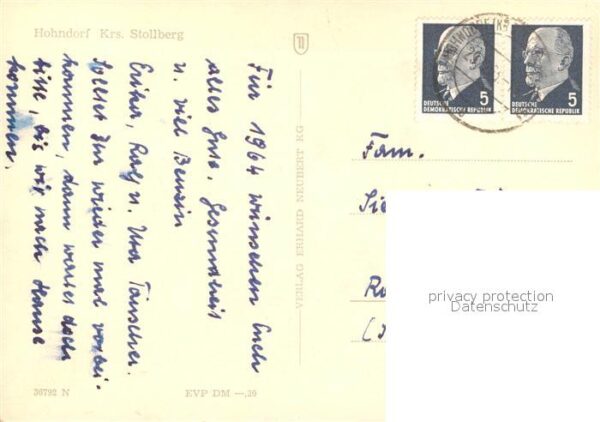 Hohndorf Krs. Stollberg
Für 1964 wünschen Euch
alles Gute, Gesundheit
u. viel Benzin
Erika, Rolf u. Uta Täuscher.
Solltet Ihr wieder mal vorbei-
kommen, dann wartet doch
bitte, bis wir nach Hause
kommen.
36792 N
EVP DM —,20
VERLAG ERHARD NEUBERT KG
5
DEUTSCHE
DEMOKRATISCHE REPUBLIK
5
DEUTSCHE
DEMOKRATISCHE REPUBLIK
Fam.
privacy protection
Datenschutz